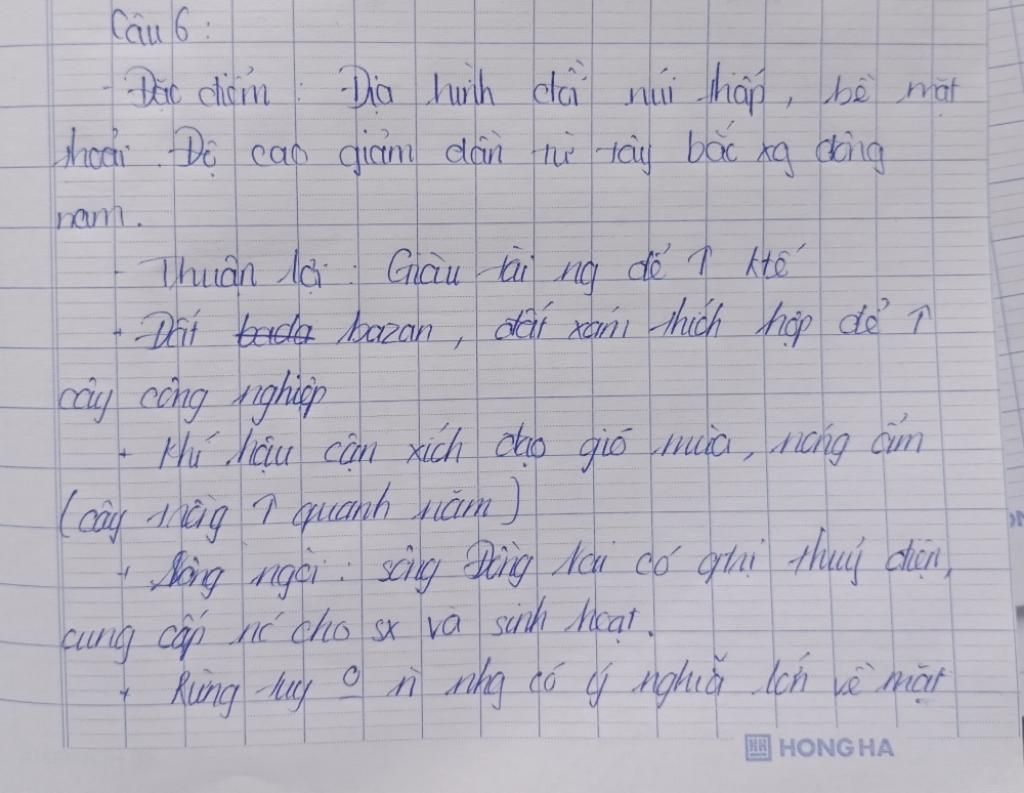 Câu 6:
- Đặc điểm: Địa hình đồi núi thấp, bề mặt
thoải. Độ cao giảm dần từ tây bắc xg đông
nam.
- Thuận lợi: Giàu tài ng để ↑ ktế
+ Đất bada bazan, đất xám thích hợp để ↑
cây công nghiệp
+ Khí hậu cận xích đạo gió mùa, nóng ẩm
(cây trồng ↑ quanh năm)
+ Sông ngòi: sông Đồng Nai có gtrị thuỷ điện,
cung cấp nc cho sx và sinh hoạt.
+ Rừng tuy 0 n nhg có ý nghĩa lớn về mặt
HONG HA